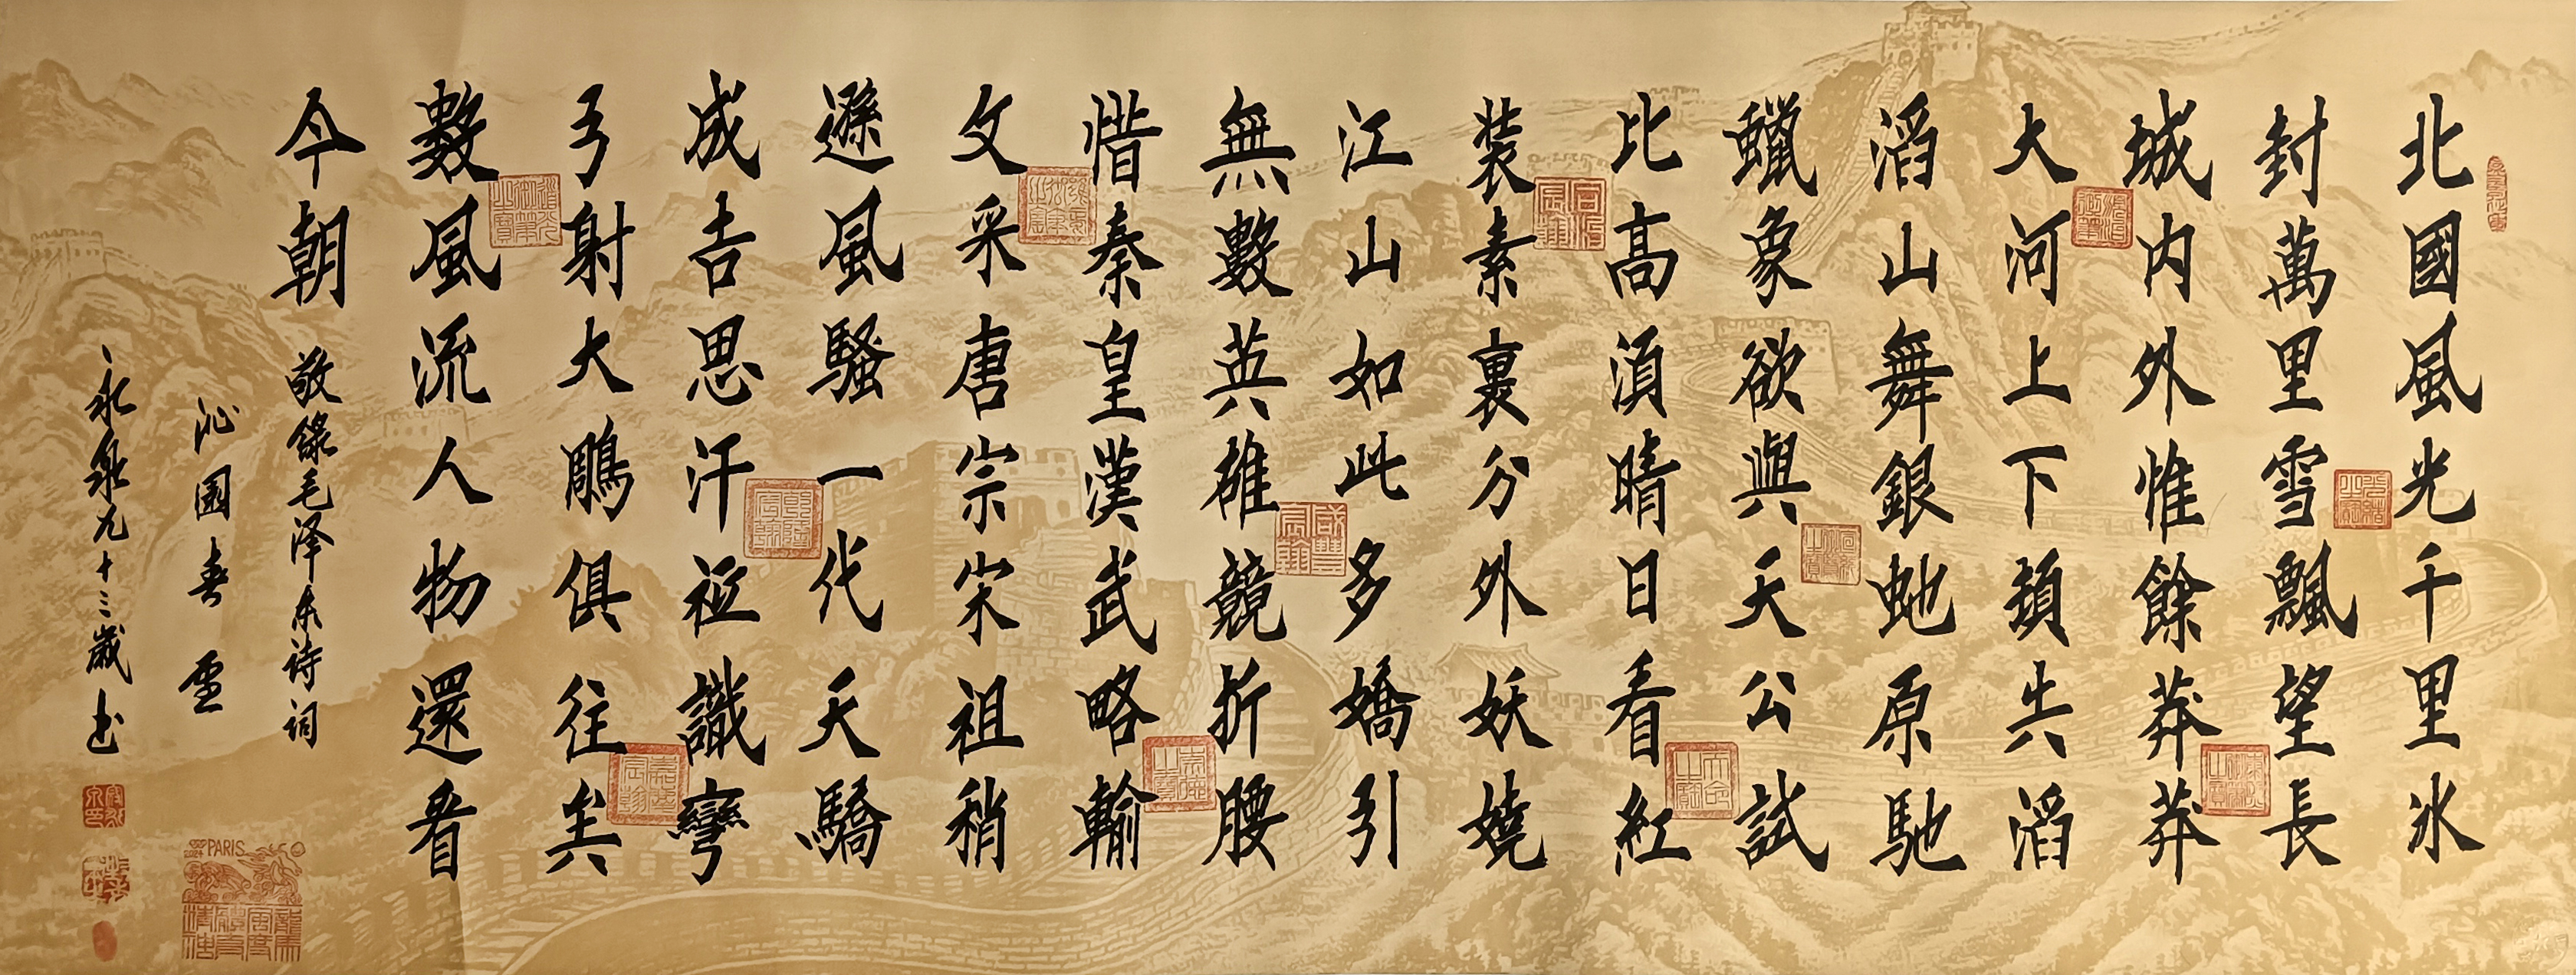 北國風光千里冰
封萬里雪飄望長
城内外惟餘莽莽
大河上下頓失滔
滔山舞銀蛇原馳
蠟象欲與天公試
比高須晴日看紅
装素裹分外妖嬈
江山如此多嬌引
無數英雄競折腰
惜秦皇漢武略輸
文采唐宗宋祖稍
遜風騷一代天驕
成吉思汗祗識彎
弓射大鵰俱往矣
數風流人物還看
今朝
敬錄毛泽东诗词
沁園春雪
永泉九十三歲书
PARIS